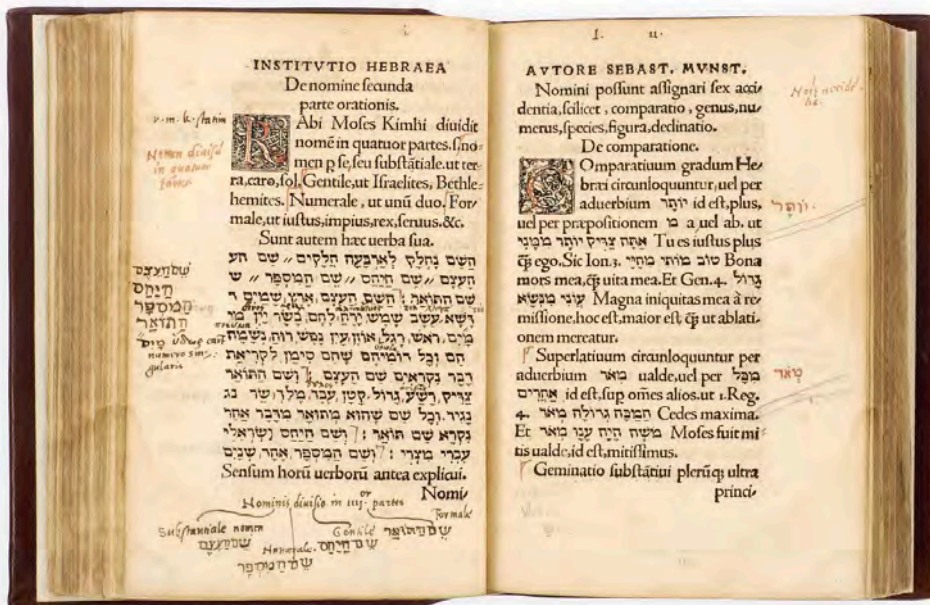 INSTITVTIO HEBRAEA
De nomine secunda
parte orationis.
RAbi Moses Kimhi diuidit
nomē in quatuor partes. s. no-
men p se, seu substātiale. ut ter
ra, caro, sol. Gentile, ut Israelites, Bethle-
hemites. Numerale, ut unū duo. For
male, ut iustus, impius, rex, seruus. &c.
Sunt autem hæc uerba sua.
השם נחלק לארבעה חלקים // שם הע
העצם // שם היחס // שם המספר // ש
שם התואר : השם העצם, ארץ, שמים ר
רשא, עשב שמש, ירח, לחם, בשר יין מי
מים, ראש, רגל, אוזן, עין נפש, רוח, נשמה
הם וכל דומיהם שהם סימן לקריאת
דבר נקראים שם העצם : ושם התואר
צדיק, רשע, גדול, קטן, עבד, מלך, שר נג
נגיד, וכל שם שהוא מתואר מדבר אחר
נקרא שם תואר : ושם היחס ישראלי
עברי מצרי : ושם המספר, אחד, שנים
Sensum horū uerborū antea explicui.
Nomi-
v. m. k. statim
Nomen diuisū
in quatuor
שם העצם
היחס
המספר
התואר
numero sin-
gularis
Nominis diuisio in iiij or partes
Substantiale nomen
שם העצם
Numerale.
שם המספר
Gentile
שם היחס
Formale
שם התואר
I. II.
AVTORE SEBAST. MVNST.
Nomini possunt assignari sex acci-
dentia, scilicet, comparatio, genus, nu-
merus, species, figura, declinatio.
De comparatione.
COmparatiuum gradum He
bræi circunloquuntur, uel per
aduerbium יותר id est, plus,
uel per præpositionem מ a uel ab. ut
אתה צדיק יותר ממני Tu es iustus plus
q̃ ego. Sic Ion. 3. טוב מותי מחיי Bona
mors mea, q̃ uita mea. Et Gen. 4. גדול
עוני מנשוא Magna iniquitas mea à re-
missione, hoc est, maior est, q̃ ut ablati-
onem mereatur.
Superlatiuum circunloquuntur per
aduerbium מאד ualde, uel per מכל
אחרים id est, sup omes alios. ut 1. Reg.
4. המכה גדולה מאד Cedes maxima.
Et משה היה ענו מאד Moses fuit mi
tis ualde, id est, mitissimus.
Geminatio substātiui plerūq; ultra
princi-
יותר.
מאד